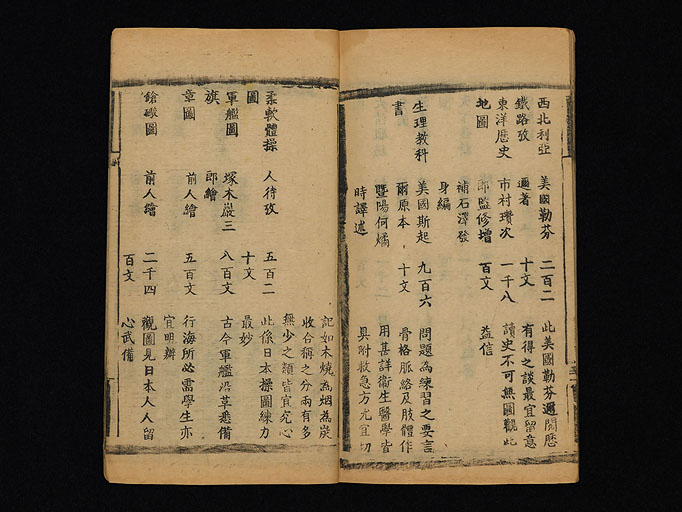 西北利亞 美國勒芬 二百二 此美國勒芬邇閱歷
鐵路攷 邇著 十文 有得之談最宜留意
東洋歷史 市村瓚次 一千八 讀史不可無圖觀此
地圖 郎監修增 百文 益信
補石澤發
身編
生理教科 美國斯起 九百六 問題為練習之要言
書 爾原本 十文 骨格脈絡及肢體作
暨陽何燏 用甚詳衛生醫學皆
時譯述 具附救急方尤宜切
記如木燒為烟為炭
收合稱之分兩有多
無少之類皆宜究心
柔軟體操 人待攷 五百二 此係日本操圖練力
圖 十文 最妙
軍艦圖 塚木巖三 八百文 古今軍艦沿革悉備
旗 郎繪
章圖 前人繪 五百文 行海所必需學生亦
宜明辨
鎗礮圖 前人繪 二千四 觀圖見日本人人留
百文 心武備